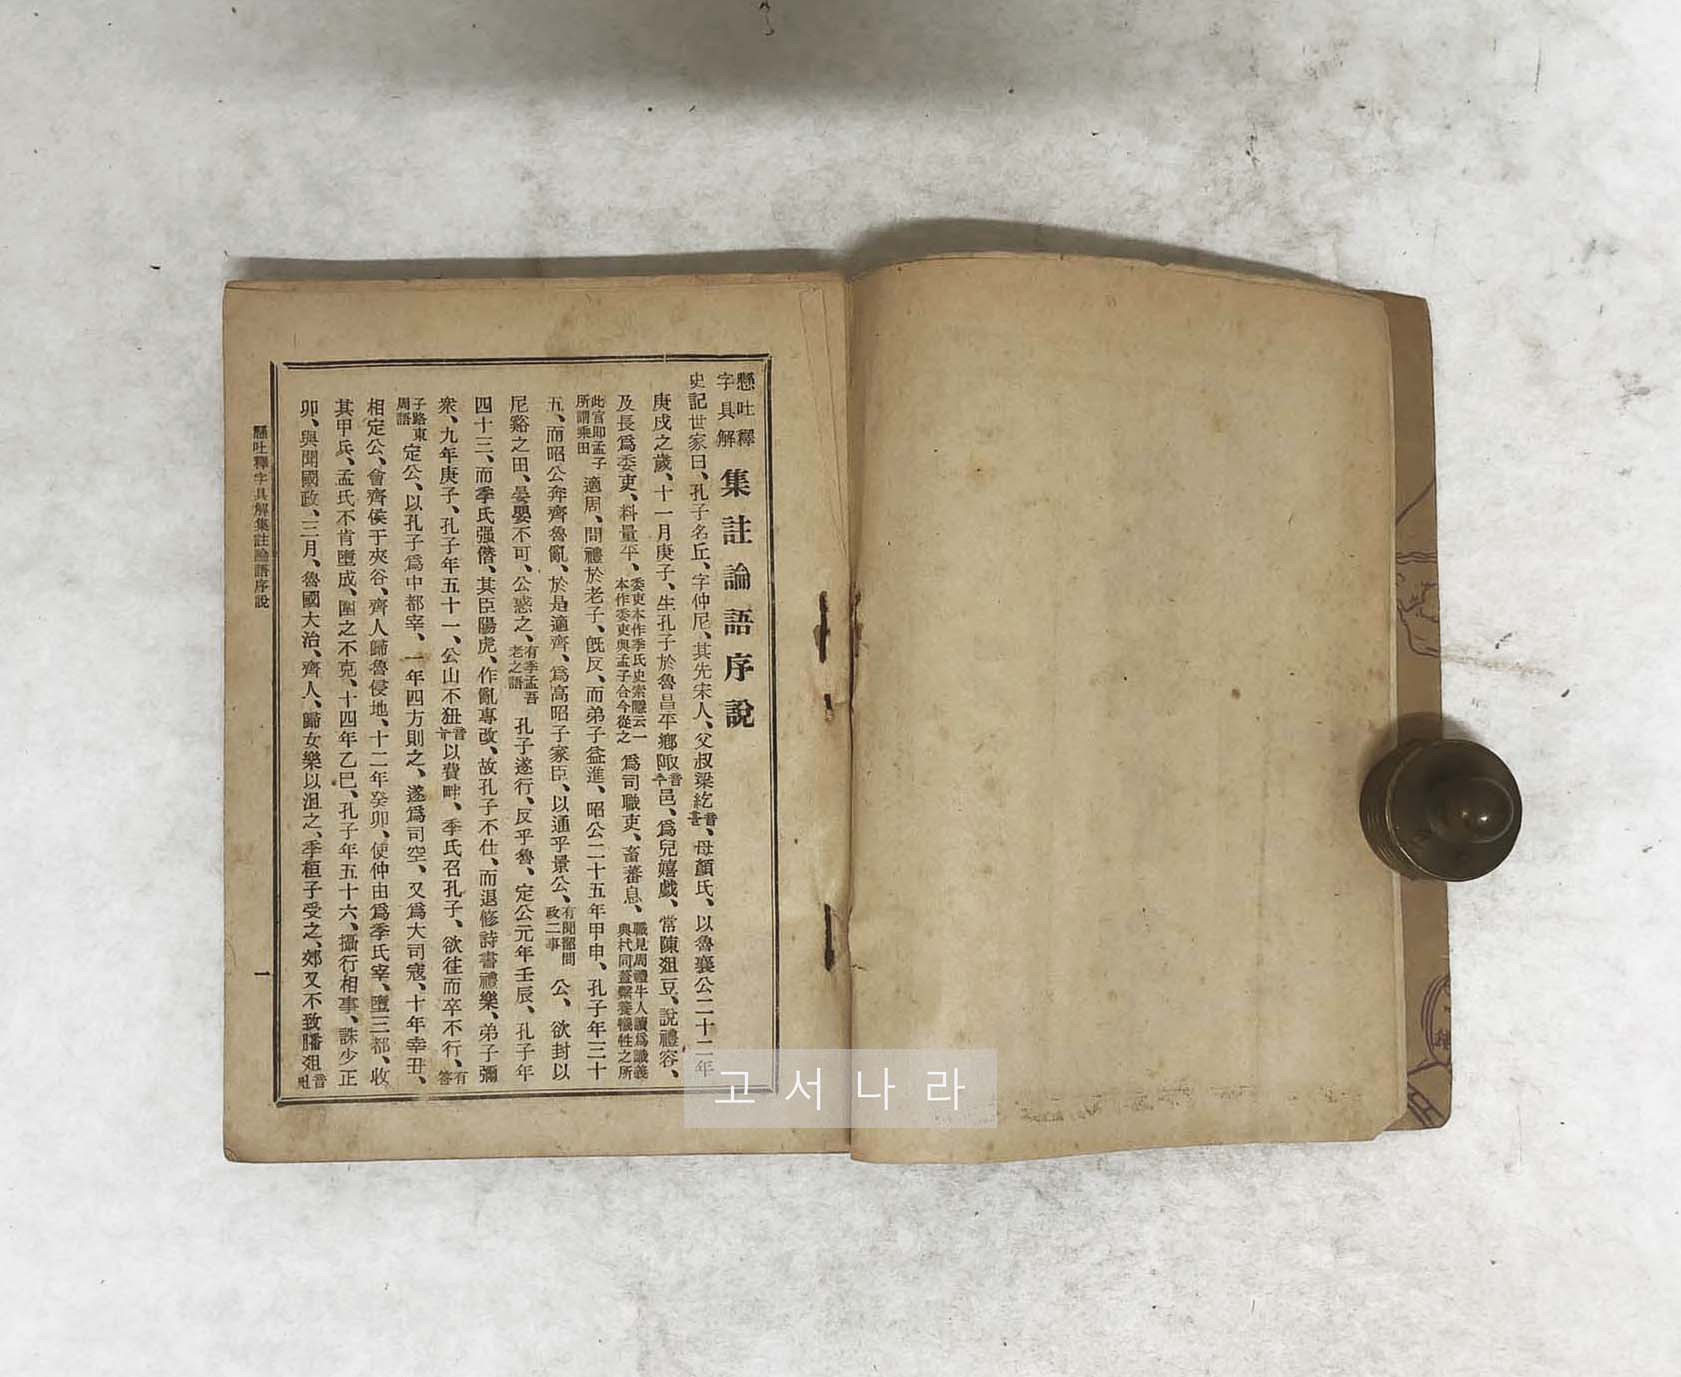 懸吐釋字具解 集註論語序說
史記世家曰、孔子名丘、字仲尼、其先宋人、父叔梁紇音흘、母顏氏、以魯襄公二十二年
庚戌之歲、十一月庚子、生孔子於魯昌平鄉陬音추邑、爲兒嬉戲、常陳俎豆、說禮容、
及長爲委吏、料量平、委吏本作季氏史索隱云一本作委吏與孟子合今從之 爲司職吏、畜蕃息、職見周禮牛人讀爲樴義與杙同蓋繫養犧牲之所
此官卽孟子所謂乘田 適周、問禮於老子、旣反、而弟子益進、昭公二十五年甲申、孔子年三十
五、而昭公奔齊魯亂、於是適齊、爲高昭子家臣、以通乎景公、有聞韶問政二事 公、欲封以
尼谿之田、晏嬰不可、公惑之、有季孟吾老之語 孔子遂行、反乎魯、定公元年壬辰、孔子年
四十三、而季氏强僭、其臣陽虎、作亂專政、故孔子不仕、而退修詩書禮樂、弟子彌
衆、九年庚子、孔子年五十一、公山不狃音뉴以費畔、季氏召孔子、欲往而卒不行、有答
子路東周語 定公、以孔子爲中都宰、一年四方則之、遂爲司空、又爲大司寇、十年辛丑、
相定公、會齊侯于夾谷、齊人歸魯侵地、十二年癸卯、使仲由爲季氏宰、墮三都、收
其甲兵、孟氏不肯墮成、圍之不克、十四年乙巳、孔子年五十六、攝行相事、誅少正
卯、與聞國政、三月、魯國大治、齊人、歸女樂以沮之、季桓子受之、郊又不致膰俎音
懸吐釋字具解集註論語序說
一
고서나라